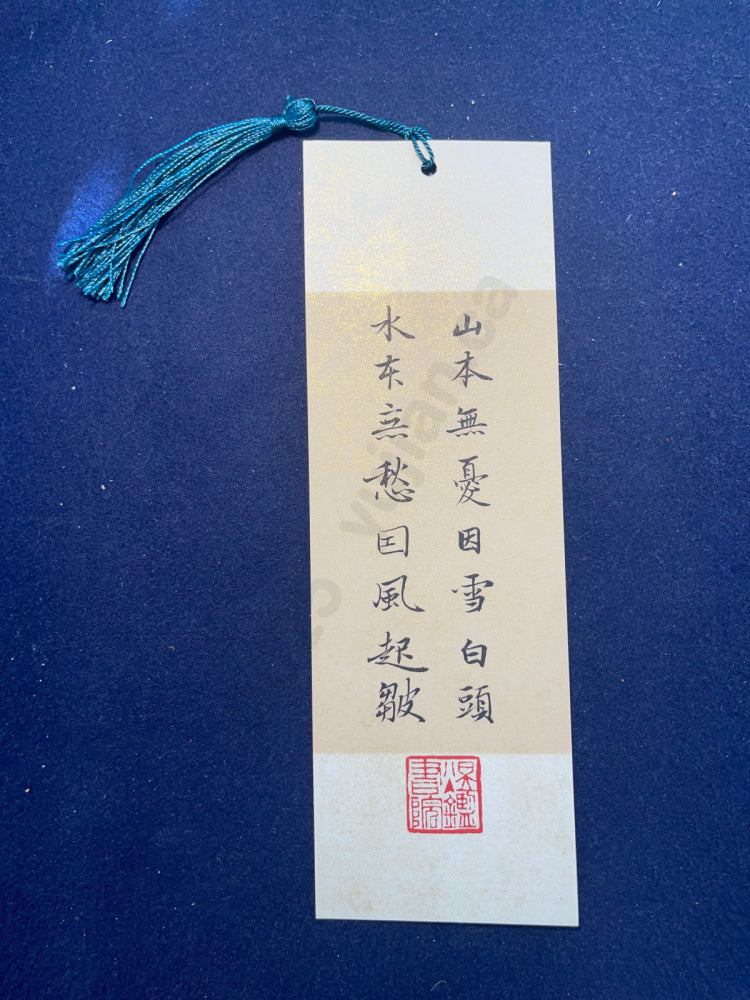 山本無憂因雪白頭
水本無愁因風起皺
鑑
書院
yujian.ca